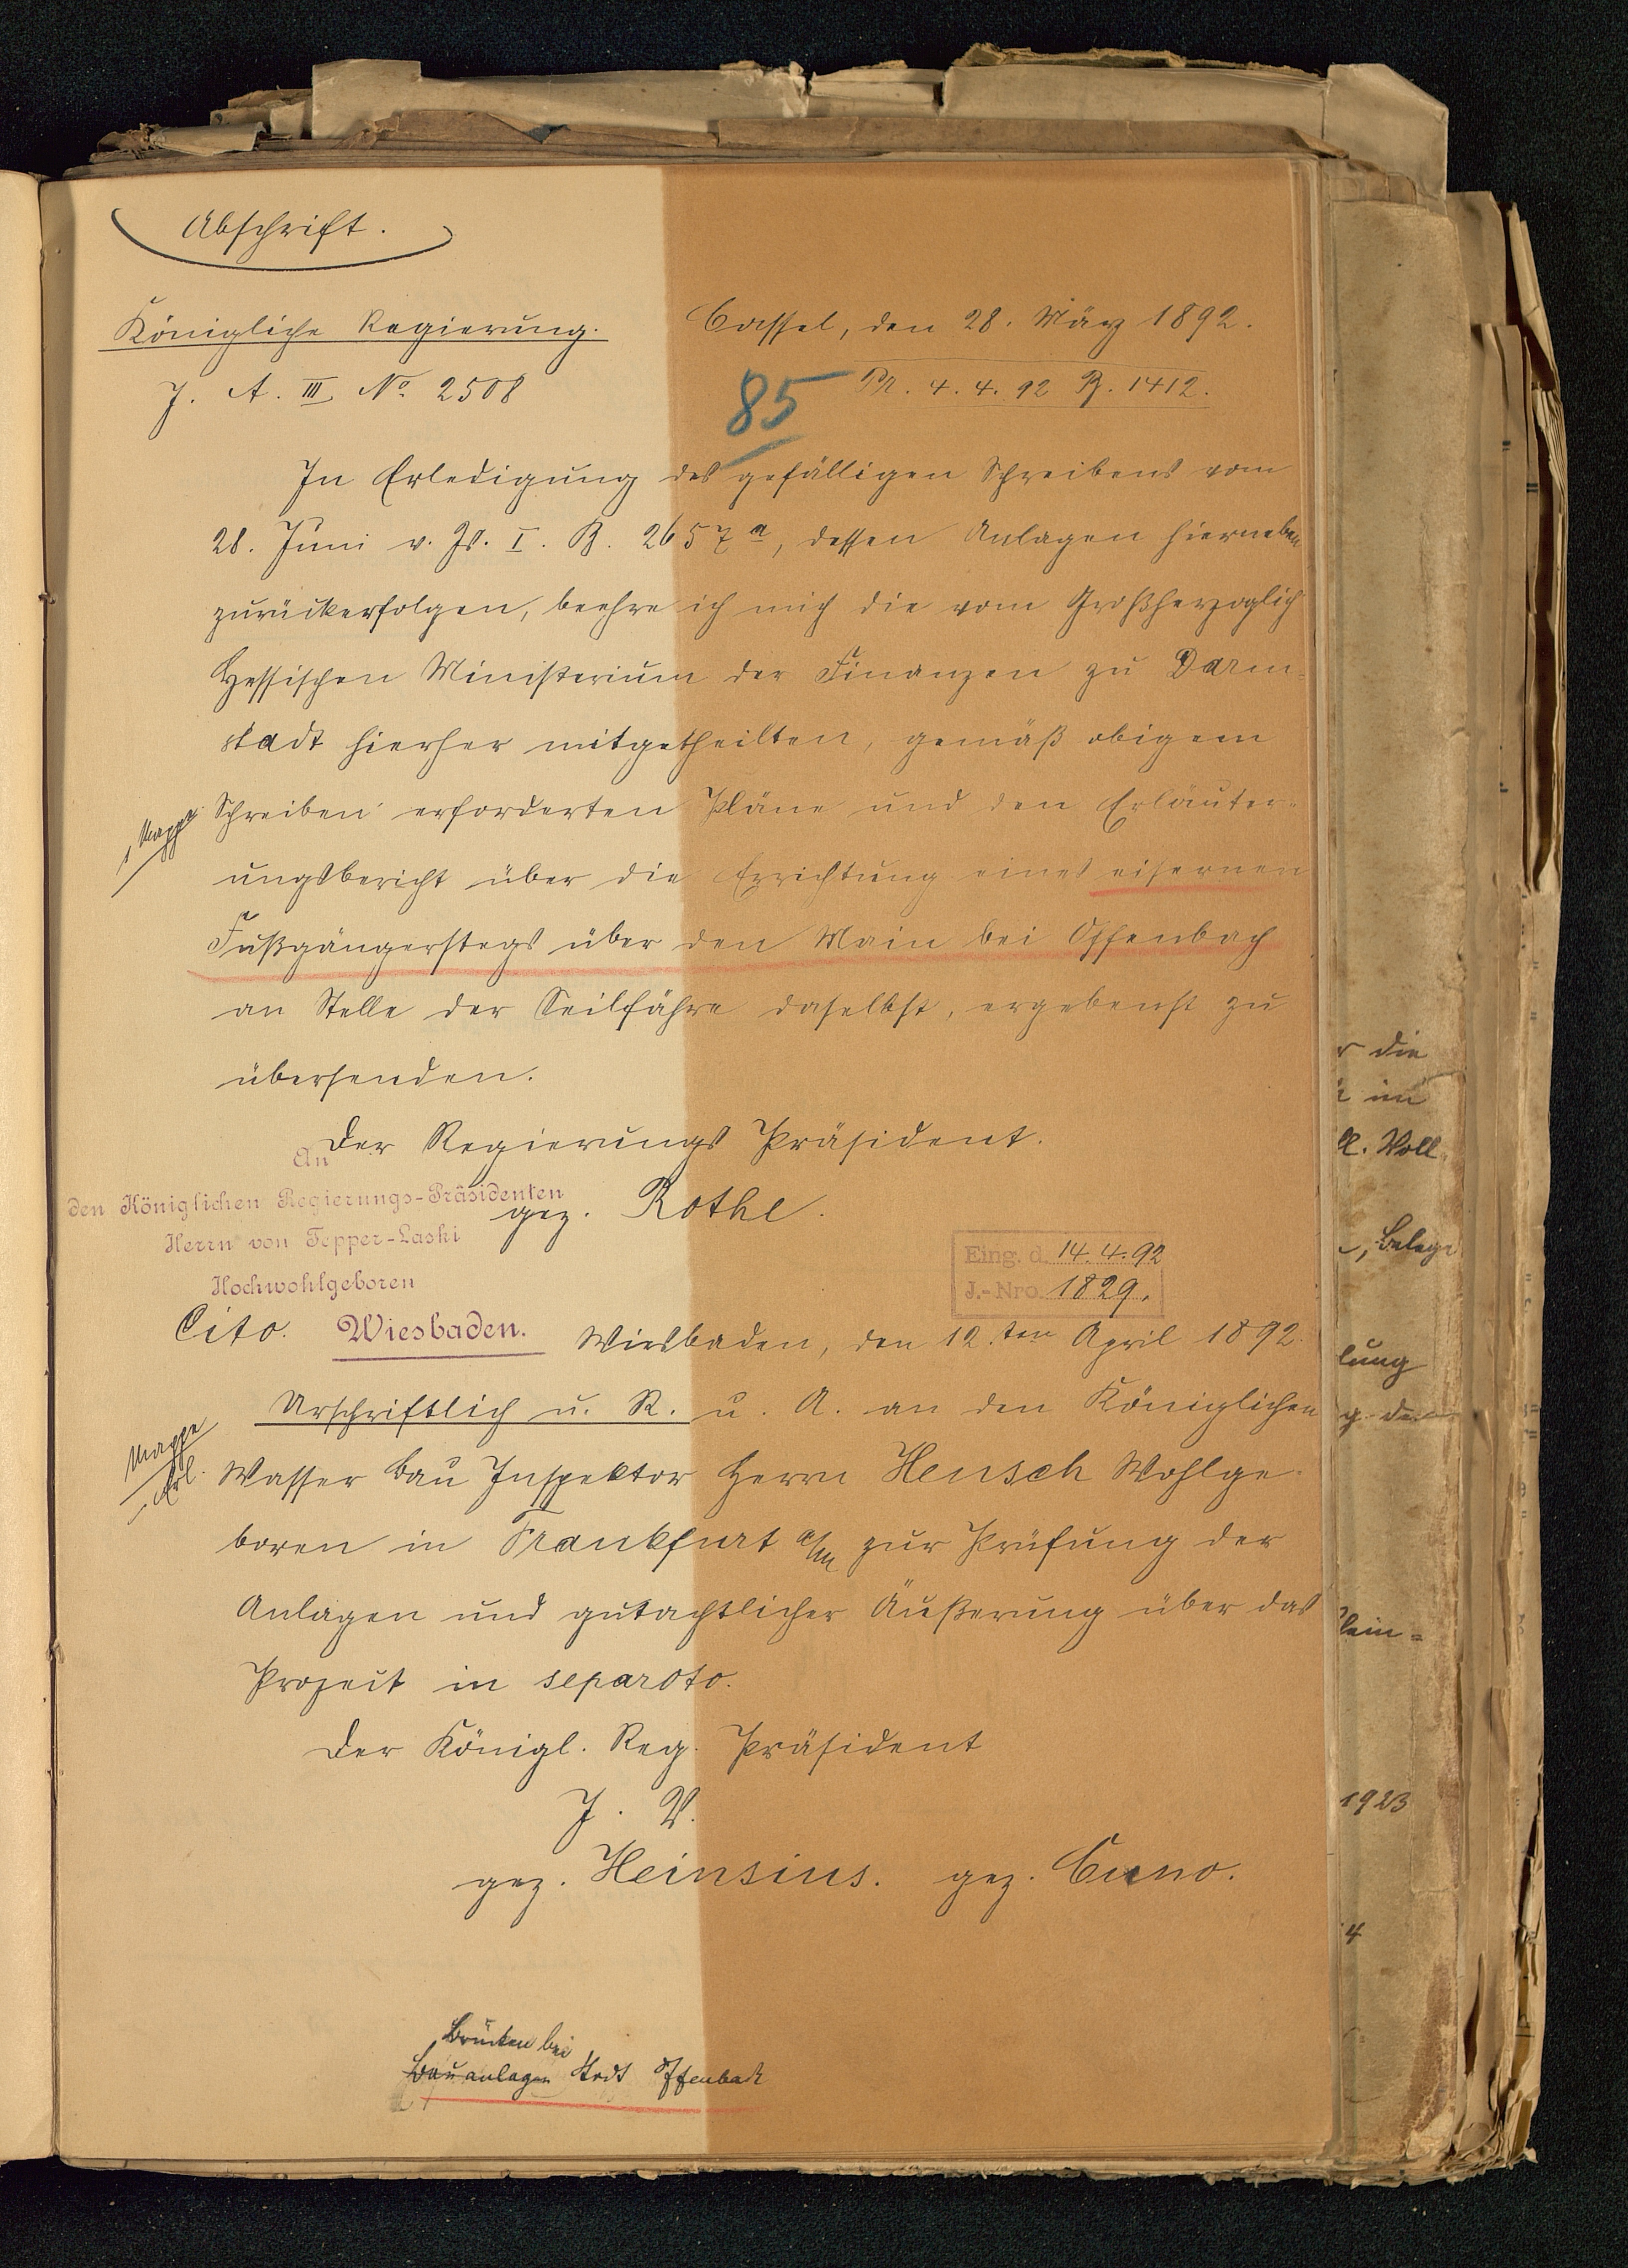 Abschrift.
Königliche Regierung.
Cassel, den 28. März 1892.
J. A. III No. 2508
85
Pr. 4. 4. 92 B. 1412.
In Erledigung des gefälligen Schreibens vom
28. Juni v. Js. I. B. 2657a, dessen Anlagen hierneben
zurückerfolgen, beehre ich mich die vom Großherzoglich
Hessischen Ministerium der Finanzen zu Darm-
stadt hierher mitgetheilten, gemäß obigem
1 Mappe
Schreiben erforderten Pläne und den Erläuter-
ungsbericht über die Errichtung eines eisernen
Fußgängerstegs über den Main bei Offenbach
an Stelle der Seilfähre daselbst, ergebenst zu
übersenden.
Der Regierungs Präsident.
gez. Rothe.
An
den Königlichen Regierungs-Präsidenten
Herrn von Tepper-Laski
Hochwohlgeboren
Wiesbaden.
Eing. d. 14. 4. 92
J.-Nro. 1829.
Cito.
Wiesbaden, den 12.ten April 1892.
Urschriftlich u. R. u. A. an den Königlichen
Mappe
Wasser Bau Inspektor Herrn Hensch Wohlge-
boren in Frankfurt a/M zur Prüfung der
Anlagen und gutachtlicher Äußerung über das
Projeckt in separato.
Der Königl. Reg. Präsident
J. V.
gez. Heinsius. gez. Cuno.
Brücken bei
Bauanlagen Stadt Offenbach
r die
im
Woll
, Belege
lung
lein=
1923
4